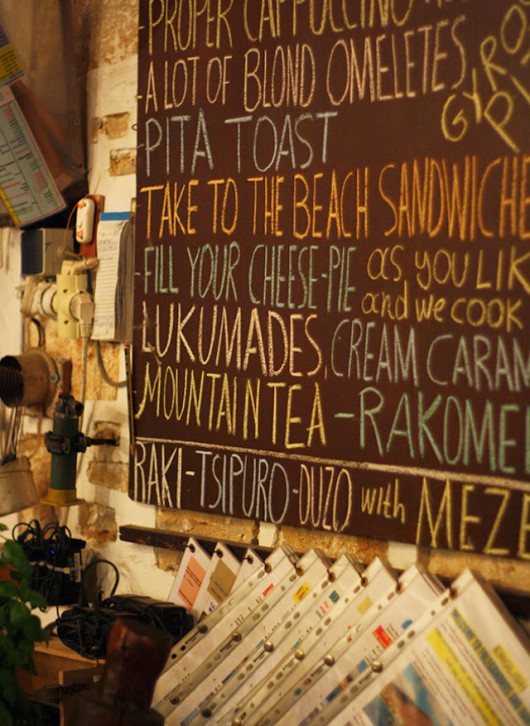 PROPER CAPPUCCINO
-A LOT OF BLOND OMELETES
GYROS
-PITA TOAST
TAKE TO THE BEACH SANDWICH
-FILL YOUR CHEESE-PIE as you LIK
and we cook
LUKUMADES, CREAM CARAM
MOUNTAIN TEA -RAKOME
RAKI-TSIPURO-OUZO with MEZE